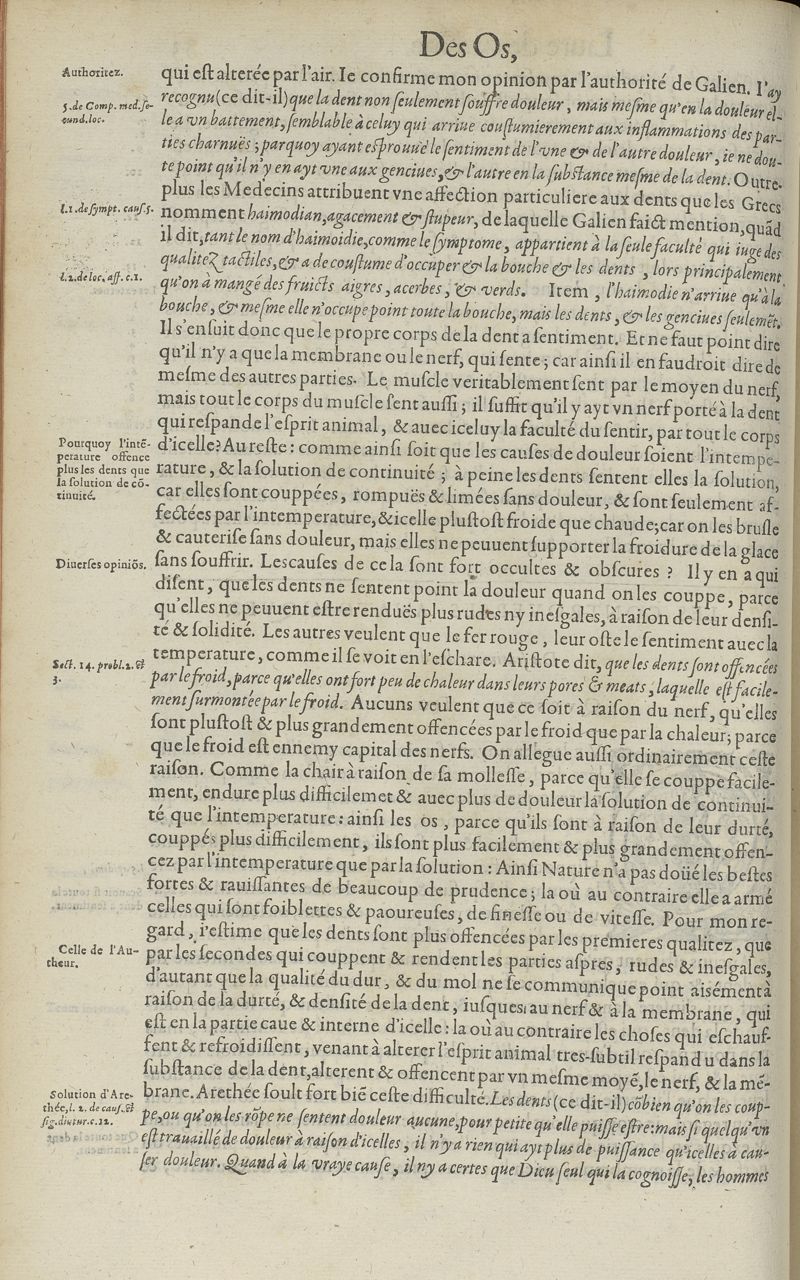 Des Os,
Authoritez.
qui est alterée par l'air. Ie confirme mon opinion par l'authorité de Galien. I'ay
5. de Comp. med. se-
cund. loc.
recognu (ce dit-il) que la dent non seulement souffre douleur, mais mesme qu'en la douleur el-
le a vn battement, semblable à celuy qui arriue coustumierement aux inflammations des par-
ties charnuës; parquoy ayant esprouué le sentiment de l'vne & de l'autre douleur, ie ne dou-
te point qu'il n'y en ayt vne aux genciues, & l'autre en la substance mesme de la dent. Outre-
plus les Medecins attribuent vne affection particuliere aux dents que les Grecs
l. 1. de sympt. caus. 5.
nomment haimodian, agacement & stupeur, de laquelle Galien faict mention, quād
il dit, tant le nom d'haimoidie, comme le symptome, appartient à la seule faculté qui iuge des
qualitez tactiles, & a de coustume d'occuper & la bouche & les dents, lors principalement
l. 2. de loc. aff. c. 2.
qu'on a mangé des fruicts aigres, acerbes, & verds. Item, l'haimodie n'arriue qu'à la
bouche, & mesme elle n'occupe point toute la bouche, mais les dents, & les genciues seulemēt.
Il s'ensuit donc que le propre corps de la dent a sentiment. Et ne faut point dire
qu'il n'y a que la membrane ou le nerf, qui sente; car ainsi il en faudroit dire de
mesme des autres parties. Le muscle veritablement sent par le moyen du nerf,
mais tout le corps du muscle sent aussi; il suffit qu'il y ayt vn nerf porté à la dent
qui respande l'esprit animal, & auec iceluy la faculté du sentir, par tout le corps
Pourquoy l'intē-
perature offence
plus les dents que
la solution de cō-
tinuité.
d'icelle? Au reste: comme ainsi soit que les causes de douleur soient l'intempe-
rature, & la solution de continuité; à peine les dents sentent elles la solution,
car elles sont couppées, rompuës & limées sans douleur, & sont seulement af-
fectées par l'intemperature, & icelle plustost froide que chaude; car on les brusle
& cauterise sans douleur, mais elles ne peuuent supporter la froidure de la glace
Diuerses opiniōs.
sans souffrir. Les causes de cela sont fort occultes & obscures? Il y en a qui
disent, que les dents ne sentent point la douleur quand on les couppe, parce
qu'elles ne peuuent estre renduës plus rudes ny inesgales, à raison de leur densi-
té & solidité. Les autres veulent que le fer rouge, leur oste le sentiment auec la
Sect. 14. probl. 2. &
3.
temperature, comme il se voit en l'eschare. Aristote dit, que les dents sont offencées
par le froid, parce qu'elles ont fort peu de chaleur dans leurs pores & meats, laquelle est facile-
ment surmontée par le froid. Aucuns veulent que ce soit à raison du nerf, qu'elles
sont plustost & plus grandement offencées par le froid que par la chaleur; parce
que le froid est ennemy capital des nerfs. On allegue aussi ordinairement ceste
raison. Comme la chair à raison de sa mollesse, parce qu'elle se couppe facile-
ment, endure plus difficilemēt & auec plus de douleur la solution de continui-
té que l'intemperature: ainsi les os, parce qu'ils sont à raison de leur durté,
couppés plus difficilement, ils sont plus facilement & plus grandement offen-
cez par l'intemperature que par la solution: Ainsi Nature n'a pas doüé les bestes
fortes & rauissantes de beaucoup de prudence; la où au contraire elle a armé
celles qui sont foiblettes & paoureuses, de finesse ou de vitesse. Pour mon re-
gard, i'estime que les dents sont plus offencées par les premieres qualitez, que
Celle de l'Au-
theur.
par les secondes qui couppent & rendent les parties aspres, rudes & inesgales,
d'autant que la qualité du dur, & du mol ne se communique point aisément à
raison de la durté, & densité de la dent, iusques au nerf & à la membrane, qui
est en la partie caue & interne d'icelle: la où au contraire les choses qui eschauf-
fent & refroidissent, venant à alterer l'esprit animal tres-subtil respandu dans la
substance de la dent, alterent & offencent par vn mesme moyē, le nerf, & la mē-
Solution d'Are-
thée, l. 2. de caus. &
sig. diutur. c. 12.
brane. Arethée soult fort biē ceste difficulté. Les dents (ce dit-il) cōbien qu'on les coup-
pe, ou qu'on les rōpe ne sentent douleur aucune, pour petite qu'elle puisse estre: mais si quelqu'vn
est trauaillé de douleur à raison d'icelles, il n'y a rien qui ayt plus de puissance qu'icelles à cau-
ser douleur. Quand à la vraye cause, il ny a certes que Dieu seul qui la cognoisse; les hommes